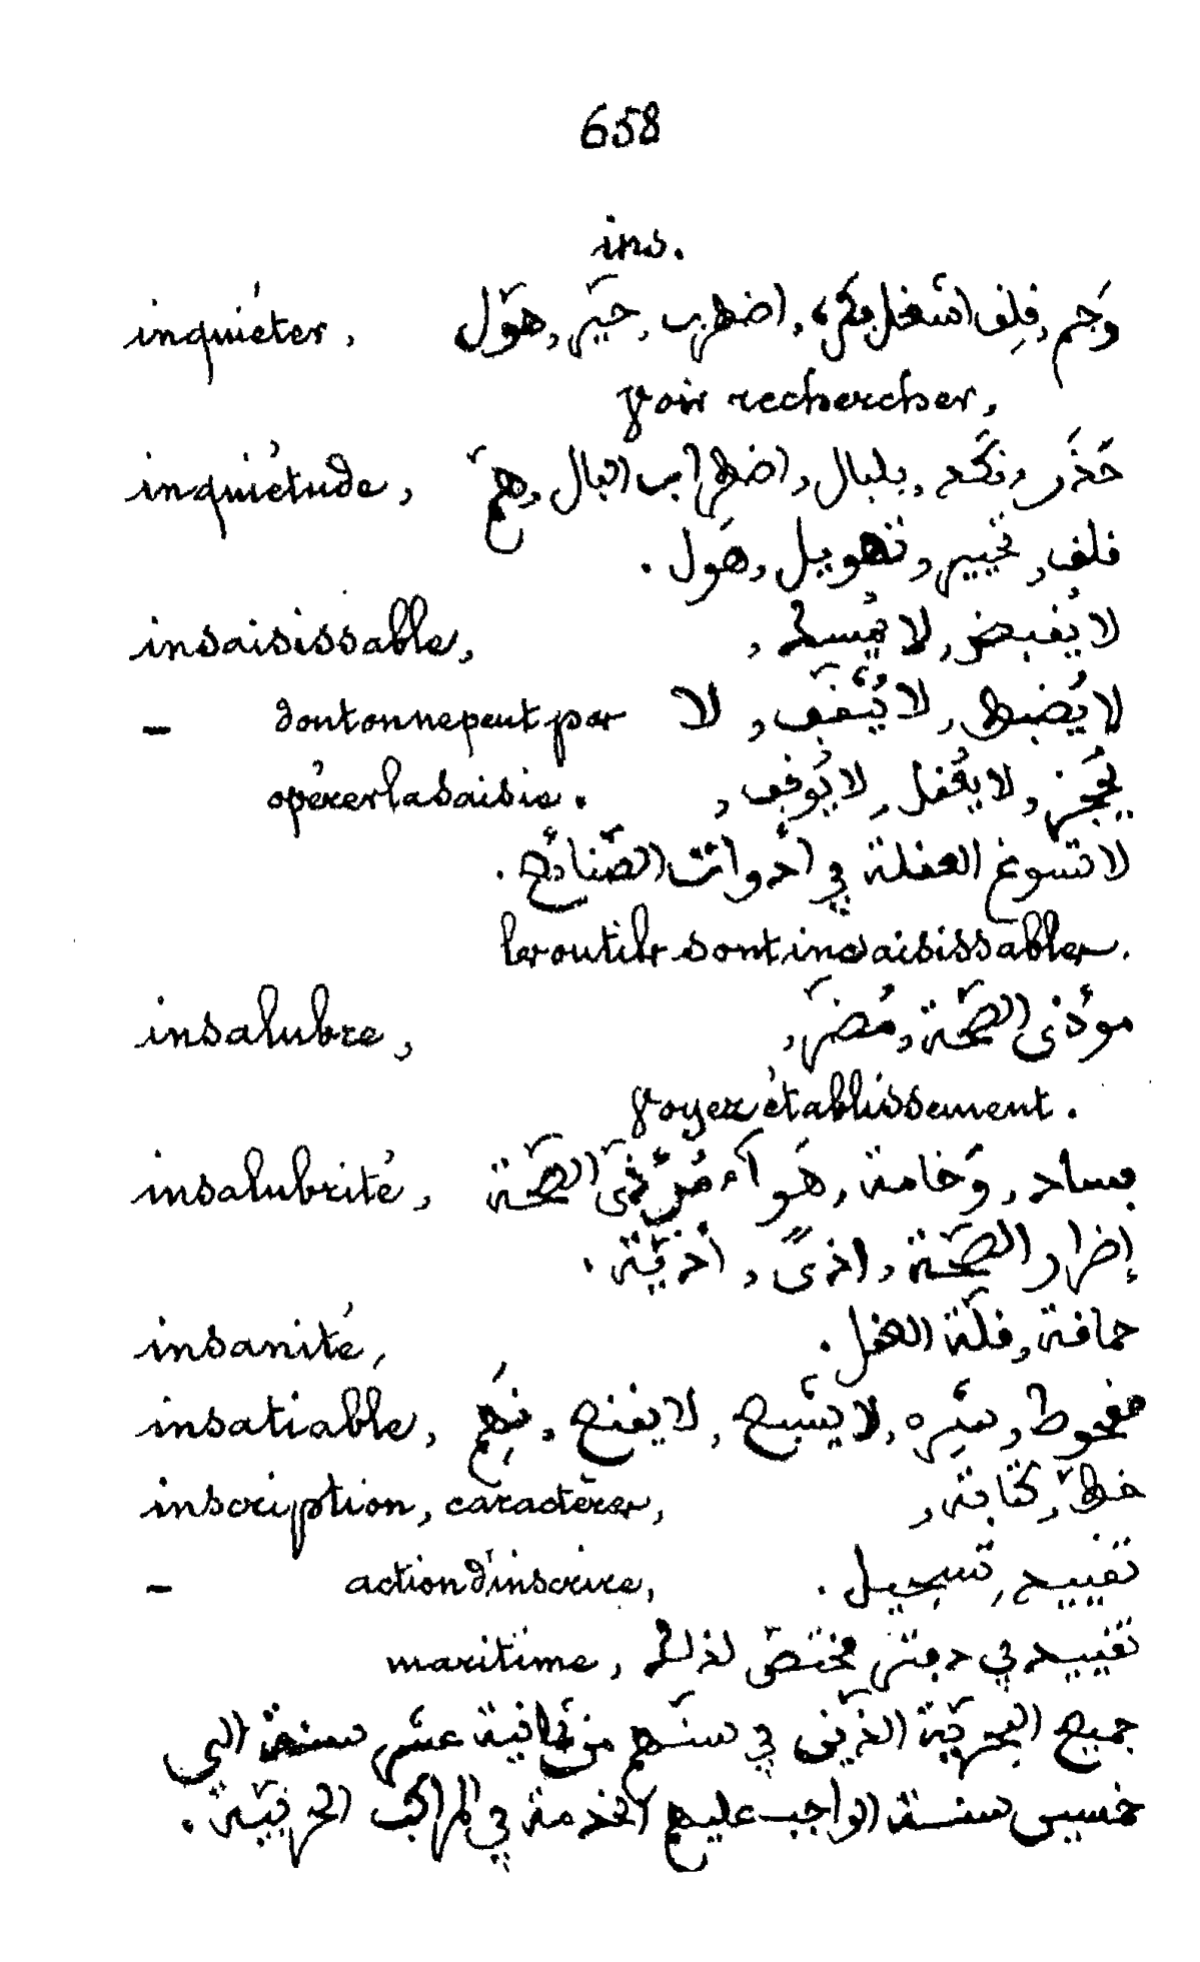 658
ins.
inquiéter, وَجم, قلِق اشغل فكره, اضطرب, حيّر, هوّل
voir rechercher,
inquiétude, حَذَر, نَكَد, بلبال, اضطراب البال, همّ
قلق, تحيير, تهويل, هَول.
insaisissable, لا يُقبض, لا يُمسك,
– dont on ne peut pas لا يُضبط, لا يُثقّف, لا
opérer la saisie. يُحجز, لا يُعقل, لا يُوقف,
لا تسوغ العقلة في أدوات الصّنائع.
les outils sont insaisissables.
insalubre, موذي الصّحّة, مُضرّ,
voyez établissement.
insalubrité, فساد, وَخامة, هَواء مُؤذي الصّحّة
إضرار الصّحّة, اذىً, أذيّة.
insanité, حماقة, قلّة العقل.
insatiable, شَرِه, لا يشبع, لا يقنع, نَهِم
inscription, caractères, خطّ, كتابة,
– action d'inscrire, تقييد, تسجيل.
maritime, تقييد في دفتر مختصّ لذلك
جميع البحريّة الذين في سنّهم من ثمانية عشر سنة الى
خمسين سنة الواجب عليهم الخدمة في المراكب الحربيّة.